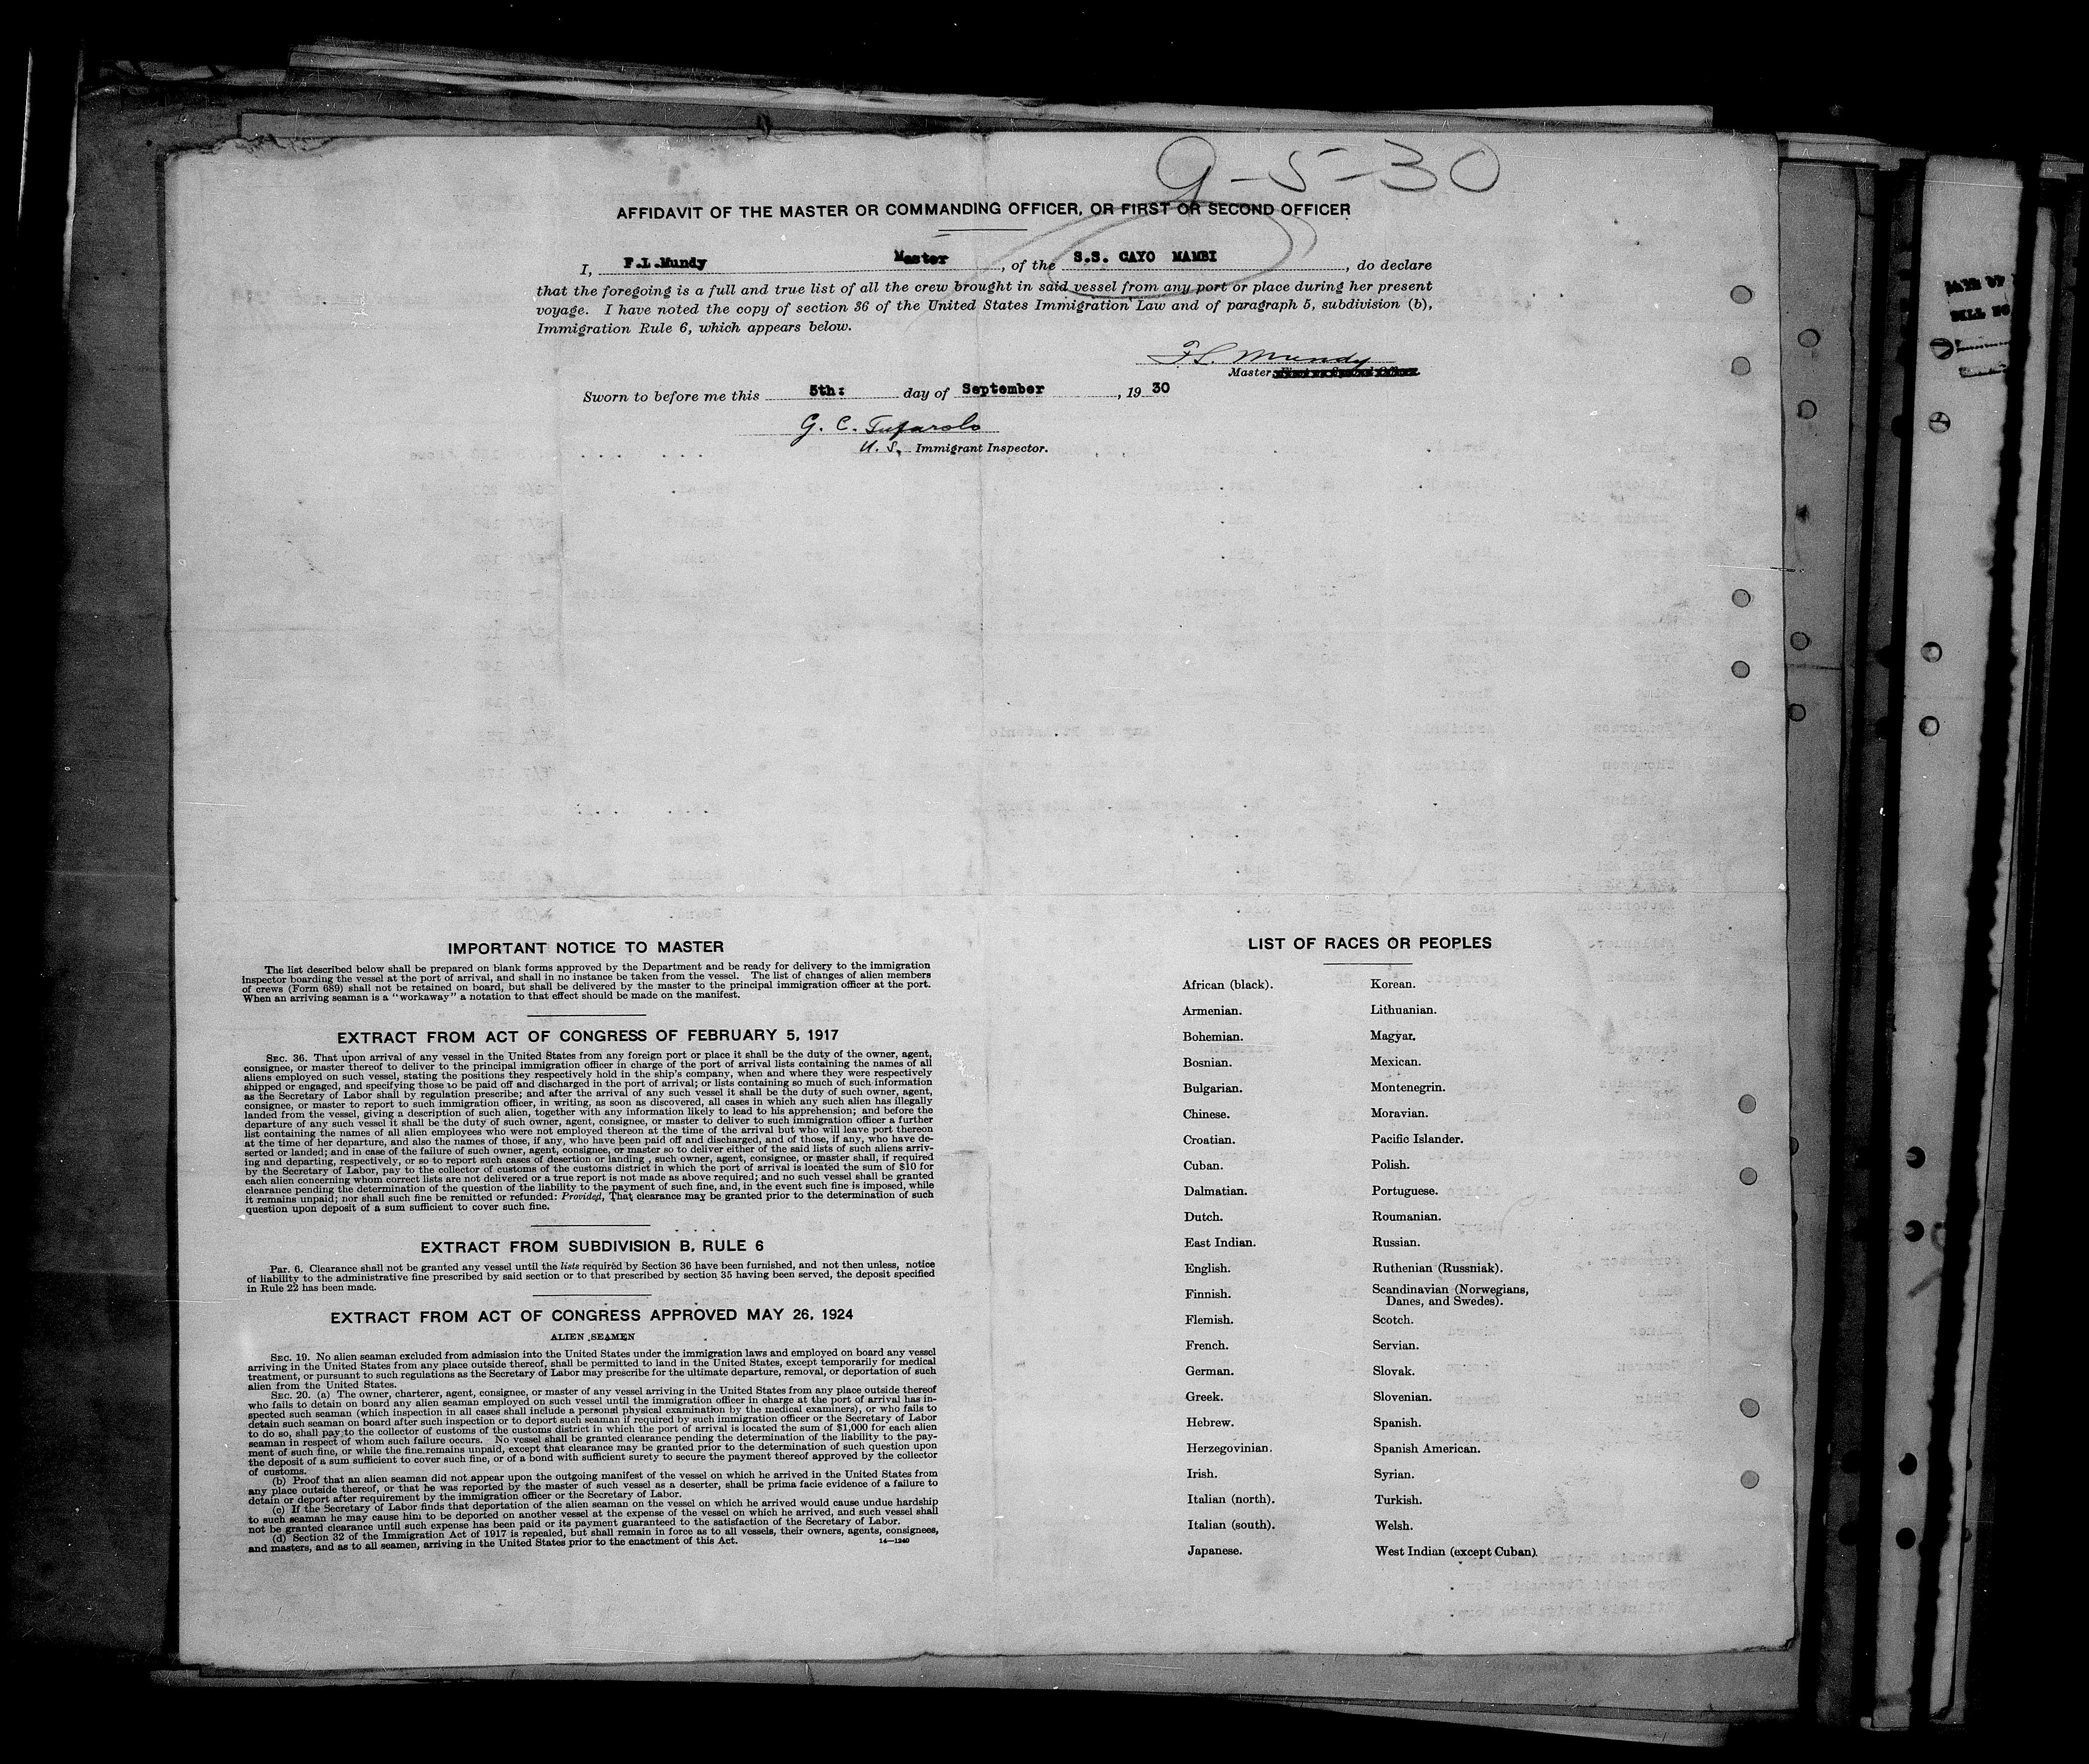 9-5-30
AFFIDAVIT OF THE MASTER OR COMMANDING OFFICER, OR FIRST OR SECOND OFFICER
I, F.L.Mundy Master, of the S.S. CAYO MAMBI, do declare
that the foregoing is a full and true list of all the crew brought in said vessel from any port or place during her present
voyage. I have noted the copy of section 36 of the United States Immigration Law and of paragraph 5, subdivision (b),
Immigration Rule 6, which appears below.
F L. Mundy
Master
Sworn to before me this 5th: day of September, 19 30
G. C. Tufarolo
U. S. Immigrant Inspector.
IMPORTANT NOTICE TO MASTER
The list described below shall be prepared on blank forms approved by the Department and be ready for delivery to the immigration
inspector boarding the vessel at the port of arrival, and shall in no instance be taken from the vessel. The list of changes of alien members
of crews (Form 689) shall not be retained on board, but shall be delivered by the master to the principal immigration officer at the port.
When an arriving seaman is a "workaway" a notation to that effect should be made on the manifest.
EXTRACT FROM ACT OF CONGRESS OF FEBRUARY 5, 1917
SEC. 36. That upon arrival of any vessel in the United States from any foreign port or place it shall be the duty of the owner, agent,
consignee, or master thereof to deliver to the principal immigration officer in charge of the port of arrival lists containing the names of all
aliens employed on such vessel, stating the positions they respectively hold in the ship's company, when and where they were respectively
shipped or engaged, and specifying those to be paid off and discharged in the port of arrival; or lists containing so much of such information
as the Secretary of Labor shall by regulation prescribe; and after the arrival of any such vessel it shall be the duty of such owner, agent,
consignee, or master to report to such immigration officer, in writing, as soon as discovered, all cases in which any such alien has illegally
landed from the vessel, giving a description of such alien, together with any information likely to lead to his apprehension; and before the
departure of any such vessel it shall be the duty of such owner, agent, consignee, or master to deliver to such immigration officer a further
list containing the names of all alien employees who were not employed thereon at the time of the arrival but who will leave port thereon
at the time of her departure, and also the names of those, if any, who have been paid off and discharged, and of those, if any, who have de-
serted or landed; and in case of the failure of such owner, agent, consignee, or master so to deliver either of the said lists of such aliens arriv-
ing and departing, respectively, or so to report such cases of desertion or landing, such owner, agent, consignee, or master shall, if required
by the Secretary of Labor, pay to the collector of customs of the customs district in which the port of arrival is located the sum of $10 for
each alien concerning whom correct lists are not delivered or a true report is not made as above required; and no such vessel shall be granted
clearance pending the determination of the question of the liability to the payment of such fine, and, in the event such fine is imposed, while
it remains unpaid; nor shall such fine be remitted or refunded: Provided, That clearance may be granted prior to the determination of such
question upon deposit of a sum sufficient to cover such fine.
EXTRACT FROM SUBDIVISION B, RULE 6
Par. 6. Clearance shall not be granted any vessel until the lists required by Section 36 have been furnished, and not then unless, notice
of liability to the administrative fine prescribed by said section or to that prescribed by section 35 having been served, the deposit specified
in Rule 22 has been made.
EXTRACT FROM ACT OF CONGRESS APPROVED MAY 26, 1924
ALIEN SEAMEN
SEC. 19. No alien seaman excluded from admission into the United States under the immigration laws and employed on board any vessel
arriving in the United States from any place outside thereof, shall be permitted to land in the United States, except temporarily for medical
treatment, or pursuant to such regulations as the Secretary of Labor may prescribe for the ultimate departure, removal, or deportation of such
alien from the United States.
SEC. 20. (a) The owner, charterer, agent, consignee, or master of any vessel arriving in the United States from any place outside thereof
who fails to detain on board any alien seaman employed on such vessel until the immigration officer in charge at the port of arrival has in-
spected such seaman (which inspection in all cases shall include a personal physical examination by the medical examiners), or who fails to
detain such seaman on board after such inspection or to deport such seaman if required by such immigration officer or the Secretary of Labor
to do so, shall pay to the collector of customs of the customs district in which the port of arrival is located the sum of $1,000 for each alien
seaman in respect of whom such failure occurs. No vessel shall be granted clearance pending the determination of the liability to the pay-
ment of such fine, or while the fine remains unpaid, except that clearance may be granted prior to the determination of such question upon
the deposit of a sum sufficient to cover such fine, or of a bond with sufficient surety to secure the payment thereof approved by the collector
of customs.
(b) Proof that an alien seaman did not appear upon the outgoing manifest of the vessel on which he arrived in the United States from
any place outside thereof, or that he was reported by the master of such vessel as a deserter, shall be prima facie evidence of a failure to
detain or deport after requirement by the immigration officer or the Secretary of Labor.
(c) If the Secretary of Labor finds that deportation of the alien seaman on the vessel on which he arrived would cause undue hardship
to such seaman he may cause him to be deported on another vessel at the expense of the vessel on which he arrived, and such vessel shall
not be granted clearance until such expense has been paid or its payment guaranteed to the satisfaction of the Secretary of Labor.
(d) Section 32 of the Immigration Act of 1917 is repealed, but shall remain in force as to all vessels, their owners, agents, consignees,
and masters, and as to all seamen, arriving in the United States prior to the enactment of this Act. 14—1240
LIST OF RACES OR PEOPLES
African (black).
Armenian.
Bohemian.
Bosnian.
Bulgarian.
Chinese.
Croatian.
Cuban.
Dalmatian.
Dutch.
East Indian.
English.
Finnish.
Flemish.
French.
German.
Greek.
Hebrew.
Herzegovinian.
Irish.
Italian (north).
Italian (south).
Japanese.
Korean.
Lithuanian.
Magyar.
Mexican.
Montenegrin.
Moravian.
Pacific Islander.
Polish.
Portuguese.
Roumanian.
Russian.
Ruthenian (Russniak).
Scandinavian (Norwegians,
Danes, and Swedes).
Scotch.
Servian.
Slovak.
Slovenian.
Spanish.
Spanish American.
Syrian.
Turkish.
Welsh.
West Indian (except Cuban).